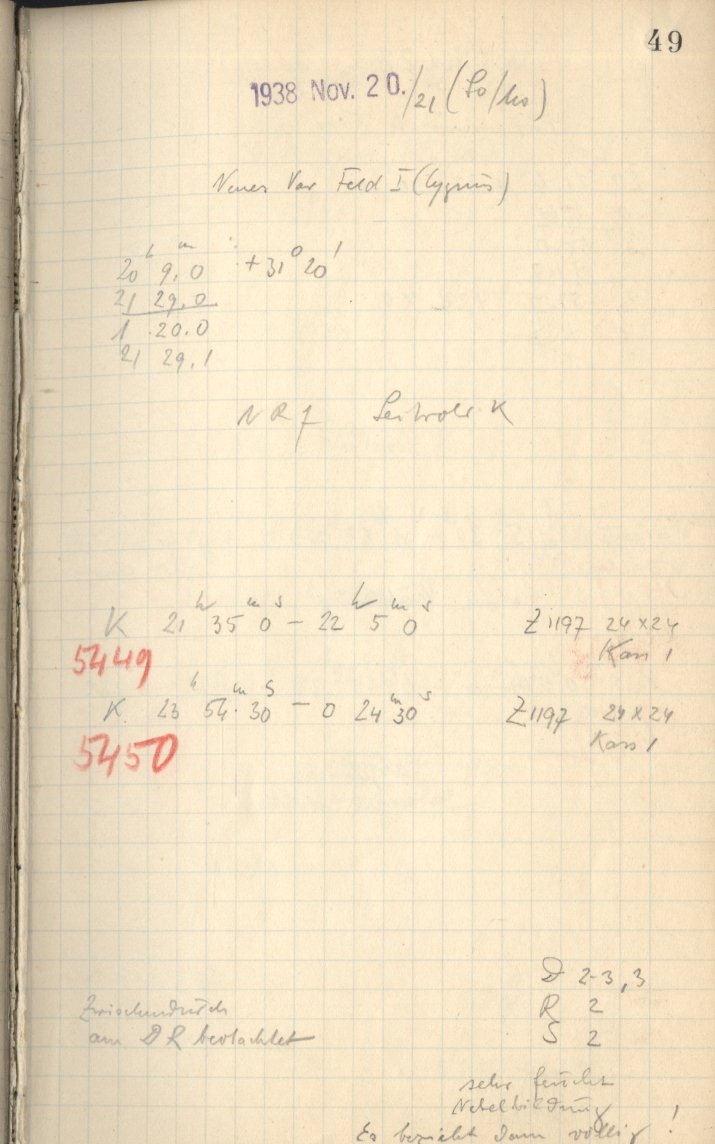 49
1938 Nov. 20./21 (So/Mo)
Neues Var Feld I (Cygnus)
20 h 9,0 m +31° 20'
21 29.0
1 20.0
21 29,1
K 21 h 35 m 0 s – 22 h 5 m 0 s Z 1197 24 x 24
5449 Kass 1
K. 23 h 54 m 30 s – 0 24 m 30 s Z 1197 24 x 24
5450 Kass 1
D 2-3, 3
Zwischendurch R 2
am DR beobachtet S 2
sehr feucht
Nebelbildung
Es bezieht dann völlig!